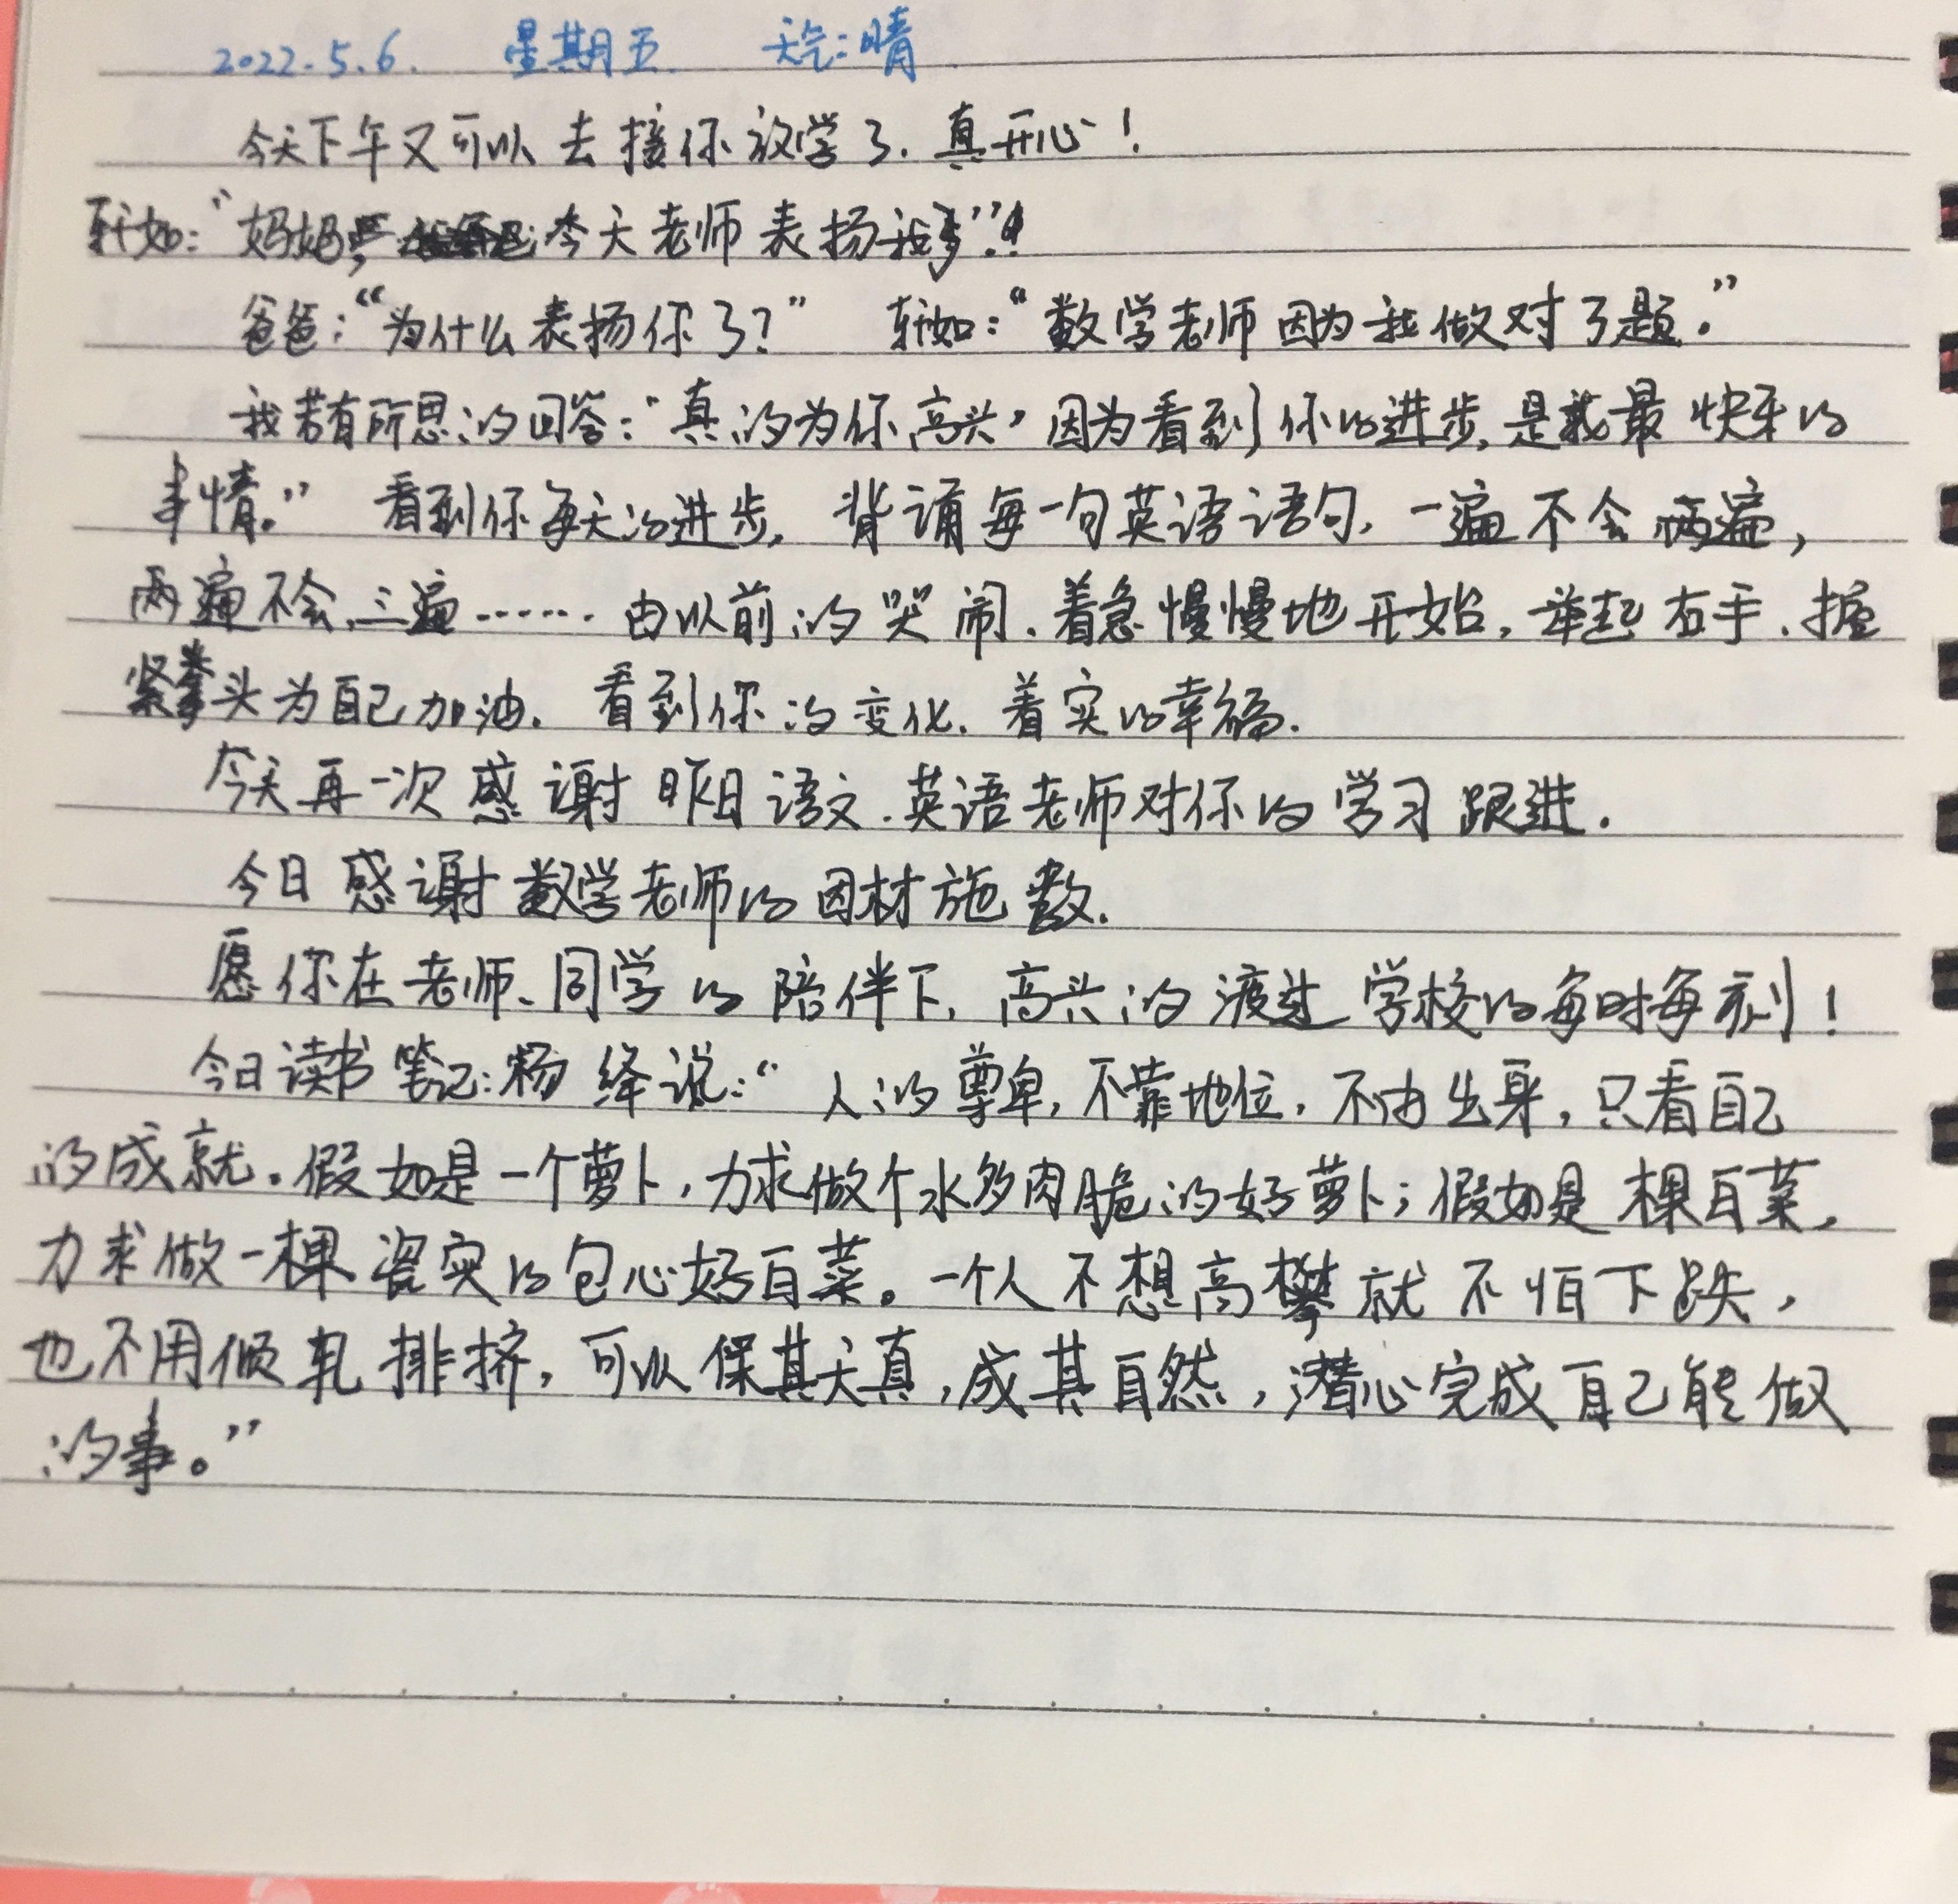 2022.5.6. 星期五 天气:晴
今天下午又可以去接你放学了.真开心!
轩如:"妈妈,今天老师表扬我了"!
爸爸:"为什么表扬你了?" 轩如:"数学老师因为我做对了题."
我若有所思的回答:"真的为你高兴,因为看到你的进步,是我最快乐的
事情。" 看到你每天的进步,背诵每一句英语语句,一遍不会两遍,
两遍不会、三遍……由以前的哭闹、着急慢慢地开始,举起右手、握
紧拳头为自己加油.看到你的变化.着实的幸福.
今天再一次感谢昨日语文.英语老师对你的学习跟进.
今日感谢数学老师的因材施教.
愿你在老师、同学的陪伴下,高兴的渡过学校的每时每刻!
今日读书笔记:杨绛说:"人的尊卑,不靠地位,不由出身,只看自己
的成就。假如是一个萝卜,力求做个水多肉脆的好萝卜;假如是棵白菜,
力求做一棵瓷实的包心好白菜。一个人不想高攀就不怕下跌,
也不用倾轧排挤,可以保其天真,成其自然,潜心完成自己能做
的事。"